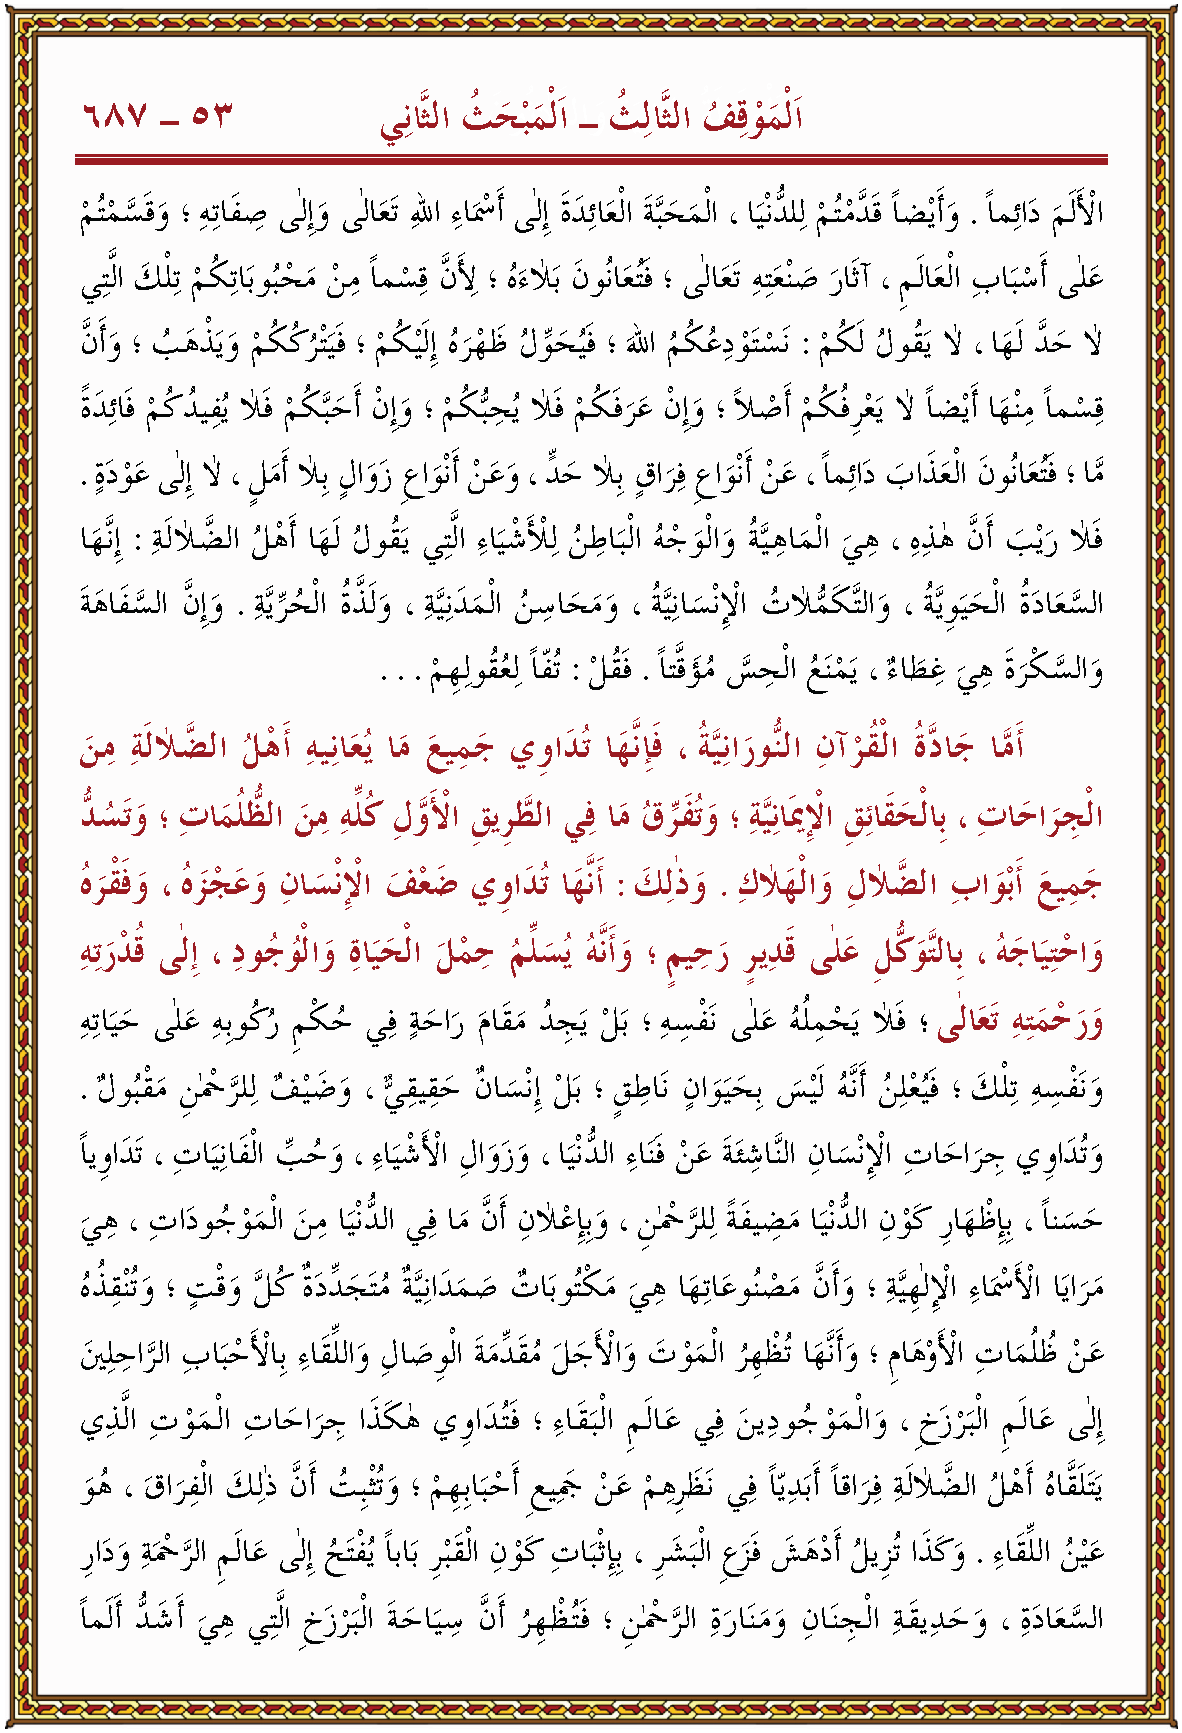 اَلْمَوْقِفُ الثَّالِثُ ـ اَلْمَبْحَثُ الثَّانِي
٥٣ ـ ٦٨٧
الْأَلَمَ دَائِماً . وَأَيْضاً قَدَّمْتُمْ لِلدُّنْيَا ، الْمَحَبَّةَ الْعَائِدَةَ إِلٰى أَسْمَاءِ اللهِ تَعَالٰى وَإِلٰى صِفَاتِهِ ؛ وَقَسَّمْتُمْ
عَلٰى أَسْبَابِ الْعَالَمِ ، آثَارَ صَنْعَتِهِ تَعَالٰى ؛ فَتُعَانُونَ بَلَاءَهُ ؛ لِأَنَّ قِسْماً مِنْ مَحْبُوبَاتِكُمْ تِلْكَ الَّتِي
لَا حَدَّ لَهَا ، لَا يَقُولُ لَكُمْ : نَسْتَوْدِعُكُمُ اللهَ ؛ فَيُحَوِّلُ ظَهْرَهُ إِلَيْكُمْ ؛ فَيَتْرُكُكُمْ وَيَذْهَبُ ؛ وَأَنَّ
قِسْماً مِنْهَا أَيْضاً لَا يَعْرِفُكُمْ أَصْلاً ؛ وَإِنْ عَرَفَكُمْ فَلَا يُحِبُّكُمْ ؛ وَإِنْ أَحَبَّكُمْ فَلَا يُفِيدُكُمْ فَائِدَةً
مَّا ؛ فَتُعَانُونَ الْعَذَابَ دَائِماً ، عَنْ أَنْوَاعِ فِرَاقٍ بِلَا حَدٍّ ، وَعَنْ أَنْوَاعِ زَوَالٍ بِلَا أَمَلٍ ، لَا إِلٰى عَوْدَةٍ .
فَلَا رَيْبَ أَنَّ هٰذِهِ ، هِيَ الْمَاهِيَّةُ وَالْوَجْهُ الْبَاطِنُ لِلْأَشْيَاءِ الَّتِي يَقُولُ لَهَا أَهْلُ الضَّلَالَةِ : إِنَّهَا
السَّعَادَةُ الْحَيَوِيَّةُ ، وَالتَّكَمُّلَاتُ الْإِنْسَانِيَّةُ ، وَمَحَاسِنُ الْمَدَنِيَّةِ ، وَلَذَّةُ الْحُرِّيَّةِ . وَإِنَّ السَّفَاهَةَ
وَالسَّكْرَةَ هِيَ غِطَاءٌ ، يَمْنَعُ الْحِسَّ مُؤَقَّتاً . فَقُلْ : تُفّاً لِعُقُولِهِمْ . . .
أَمَّا جَادَّةُ الْقُرْآنِ النُّورَانِيَّةُ ، فَإِنَّهَا تُدَاوِي جَمِيعَ مَا يُعَانِيهِ أَهْلُ الضَّلَالَةِ مِنَ
الْجِرَاحَاتِ ، بِالْحَقَائِقِ الْإِيمَانِيَّةِ ؛ وَتُفَرِّقُ مَا فِي الطَّرِيقِ الْأَوَّلِ كُلِّهِ مِنَ الظُّلُمَاتِ ؛ وَتَسُدُّ
جَمِيعَ أَبْوَابِ الضَّلَالِ وَالْهَلَاكِ . وَذٰلِكَ : أَنَّهَا تُدَاوِي ضَعْفَ الْإِنْسَانِ وَعَجْزَهُ ، وَفَقْرَهُ
وَاحْتِيَاجَهُ ، بِالتَّوَكُّلِ عَلٰى قَدِيرٍ رَحِيمٍ ؛ وَأَنَّهُ يُسَلِّمُ حِمْلَ الْحَيَاةِ وَالْوُجُودِ ، إِلٰى قُدْرَتِهِ
وَرَحْمَتِهِ تَعَالٰى ؛ فَلَا يَحْمِلُهُ عَلٰى نَفْسِهِ ؛ بَلْ يَجِدُ مَقَامَ رَاحَةٍ فِي حُكْمِ رُكُوبِهِ عَلٰى حَيَاتِهِ
وَنَفْسِهِ تِلْكَ ؛ فَيُعْلِنُ أَنَّهُ لَيْسَ بِحَيَوَانٍ نَاطِقٍ ؛ بَلْ إِنْسَانٌ حَقِيقِيٌّ ، وَضَيْفٌ لِلرَّحْمٰنِ مَقْبُولٌ .
وَتُدَاوِي جِرَاحَاتِ الْإِنْسَانِ النَّاشِئَةَ عَنْ فَنَاءِ الدُّنْيَا ، وَزَوَالِ الْأَشْيَاءِ ، وَحُبِّ الْفَانِيَاتِ ، تَدَاوِياً
حَسَناً ، بِإِظْهَارِ كَوْنِ الدُّنْيَا مَضِيفَةً لِلرَّحْمٰنِ ، وَبِإِعْلَانِ أَنَّ مَا فِي الدُّنْيَا مِنَ الْمَوْجُودَاتِ ، هِيَ
مَرَايَا الْأَسْمَاءِ الْإِلٰهِيَّةِ ؛ وَأَنَّ مَصْنُوعَاتِهَا هِيَ مَكْتُوبَاتٌ صَمَدَانِيَّةٌ مُتَجَدِّدَةٌ كُلَّ وَقْتٍ ؛ وَتُنْقِذُهُ
عَنْ ظُلُمَاتِ الْأَوْهَامِ ؛ وَأَنَّهَا تُظْهِرُ الْمَوْتَ وَالْأَجَلَ مُقَدِّمَةَ الْوِصَالِ وَاللِّقَاءِ بِالْأَحْبَابِ الرَّاحِلِينَ
إِلٰى عَالَمِ الْبَرْزَخِ ، وَالْمَوْجُودِينَ فِي عَالَمِ الْبَقَاءِ ؛ فَتُدَاوِي هٰكَذَا جِرَاحَاتِ الْمَوْتِ الَّذِي
يَتَلَقَّاهُ أَهْلُ الضَّلَالَةِ فِرَاقاً أَبَدِيّاً فِي نَظَرِهِمْ عَنْ جَمِيعِ أَحْبَابِهِمْ ؛ وَتُثْبِتُ أَنَّ ذٰلِكَ الْفِرَاقَ ، هُوَ
عَيْنُ اللِّقَاءِ . وَكَذَا تُزِيلُ أَدْهَشَ فَزَعِ الْبَشَرِ ، بِإِثْبَاتِ كَوْنِ الْقَبْرِ بَاباً يُفْتَحُ إِلٰى عَالَمِ الرَّحْمَةِ وَدَارِ
السَّعَادَةِ ، وَحَدِيقَةِ الْجِنَانِ وَمَنَارَةِ الرَّحْمٰنِ ؛ فَتُظْهِرُ أَنَّ سِيَاحَةَ الْبَرْزَخِ الَّتِي هِيَ أَشَدُّ أَلَماً